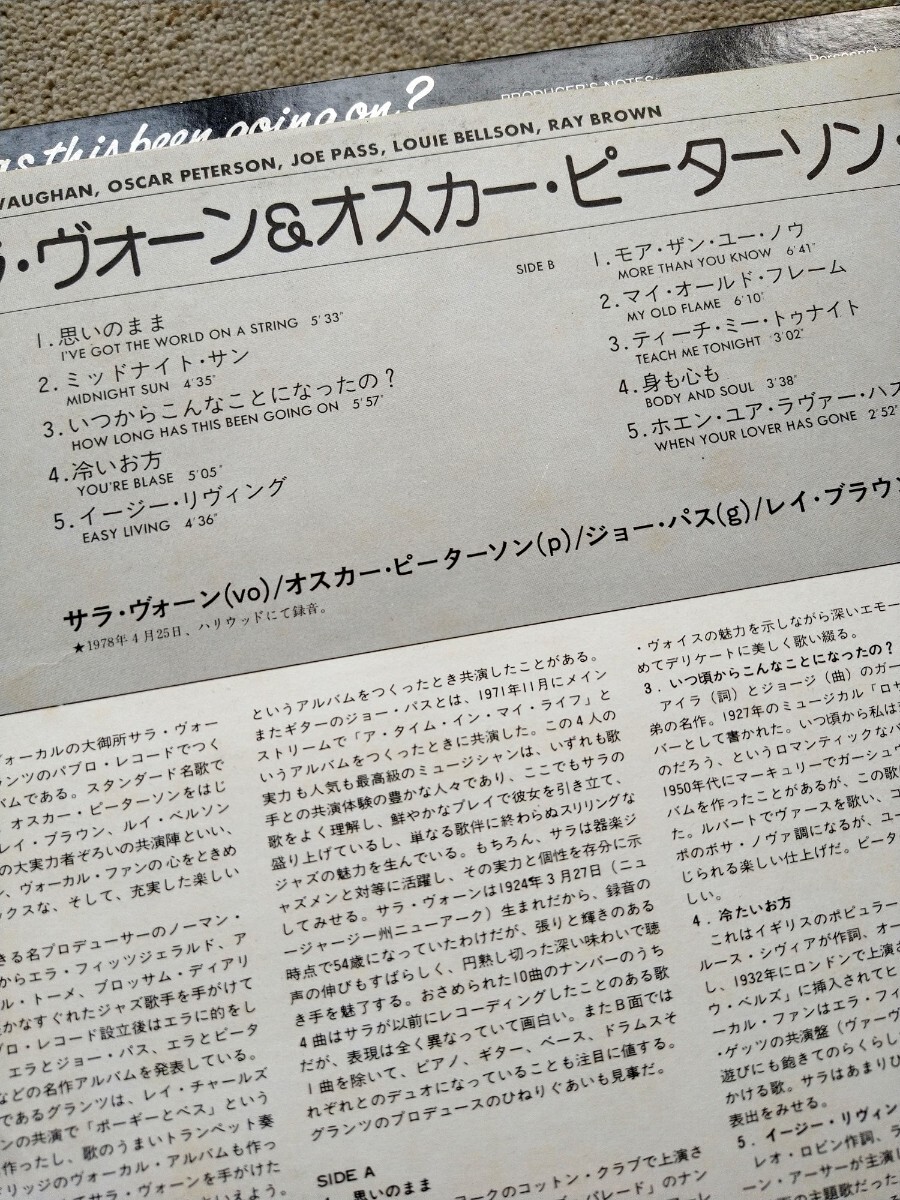 as this been going on?
PRODUCER'S NOTES:
Personnel:
VAUGHAN, OSCAR PETERSON, JOE PASS, LOUIE BELLSON, RAY BROWN
ラ・ヴォーン&オスカー・ピーターソン・
1.思いのまま
I'VE GOT THE WORLD ON A STRING 5'33"
2.ミッドナイト・サン
MIDNIGHT SUN 4'35"
3.いつからこんなことになったの?
HOW LONG HAS THIS BEEN GOING ON 5'57"
4.冷いお方
YOU'RE BLASE 5'05"
5.イージー・リヴィング
EASY LIVING 4'36"
SIDE B
1.モア・ザン・ユー・ノウ
MORE THAN YOU KNOW 6'41"
2.マイ・オールド・フレーム
MY OLD FLAME 6'10"
3.ティーチ・ミー・トゥナイト
TEACH ME TONIGHT 3'02"
4.身も心も
BODY AND SOUL 3'38"
5.ホエン・ユア・ラヴァー・ハズ
WHEN YOUR LOVER HAS GONE 2'52"
サラ・ヴォーン(vo)/オスカー・ピーターソン(p)/ジョー・パス(g)/レイ・ブラウン
★1978年4月25日、ハリウッドにて録音。
ヴォーカルの大御所サラ・ヴォー
ランツのパブロ・レコードでつく
バムである。スタンダード名歌で
、オスカー・ピーターソンをはじ
レイ・ブラウン、ルイ・ベルソン
の大実力者ぞろいの共演陣といい、
ン、ヴォーカル・ファンの心をときめ
ックスな、そして、充実した楽しい
きる名プロデューサーのノーマン・
からエラ・フィッツジェラルド、ア
ル・トーメ、ブロッサム・ディアリ
かなすぐれたジャズ歌手を手がけて
ブロ・レコード設立後はエラに的をし
、エラとジョー・パス、エラとピータ
などの名作アルバムを発表している。
であるグランツは、レイ・チャールズ
ンの共演で「ポーギーとベス」という
作ったし、歌のうまいトランペット奏
ドリッジのヴォーカル・アルバムも作っ
てサラ・ヴォーンを手がけた
といえよう。
というアルバムをつくったとき共演したことがある。
またギターのジョー・パスとは、1971年11月にメイン
ストリームで「ア・タイム・イン・マイ・ライフ」と
いうアルバムをつくったときに共演した。この4人の
実力も人気も最高級のミュージシャンは、いずれも歌
手との共演体験の豊かな人々であり、ここでもサラの
歌をよく理解し、鮮やかなプレイで彼女を引き立て、
盛り上げているし、単なる歌伴に終わらぬスリリングな
ジャズの魅力を生んでいる。もちろん、サラは器楽ジ
ャズメンと対等に活躍し、その実力と個性を存分に示
してみせる。サラ・ヴォーンは1924年3月27日(ニュ
ージャージー州ニューアーク)生まれだから、録音の
時点で54歳になっていたわけだが、張りと輝きのある
声の伸びもすばらしく、円熟し切った深い味わいで聴
き手を魅了する。おさめられた10曲のナンバーのうち
4曲はサラが以前にレコーディングしたことのある歌
だが、表現は全く異なっていて面白い。またB面では
1曲を除いて、ピアノ、ギター、ベース、ドラムスそ
れぞれとのデュオになっていることも注目に値する。
グランツのプロデュースのひねりぐあいも見事だ。
SIDE A
思いのまま
ークのコットン・クラブで上演さ
パレード」のナン
・ヴォイスの魅力を示しながら深いエモー
めてデリケートに美しく歌い綴る。
3.いつ頃からこんなことになったの?
アイラ(詞)とジョージ(曲)のガー
弟の名作。1927年のミュージカル「ロザ
バーとして書かれた。いつ頃から私は
のだろう、というロマンティックなバ
1950年代にマーキュリーでガーシュウ
バムを作ったことがあるが、この歌
た。ルバートでヴァースを歌い、コ
ポのボサ・ノヴァ調になるが、ユー
じられる楽しい仕上げだ。ピータ
しい。
4.冷たいお方
これはイギリスのポピュラー
ルース・シヴィアが作詞、オー
し、1932年にロンドンで上演さ
ウ・ベルズ」に挿入されてヒ
ーカル・ファンはエラ・フィ
・ゲッツの共演盤(ヴァーヴ
遊びにも飽きてのらくらし
かける歌。サラはあまりひ
表出をみせる。
5.イージー・リヴィン
レオ・ロビン作詞、ラ
ーン・アーサーが主演し
の主題歌だった